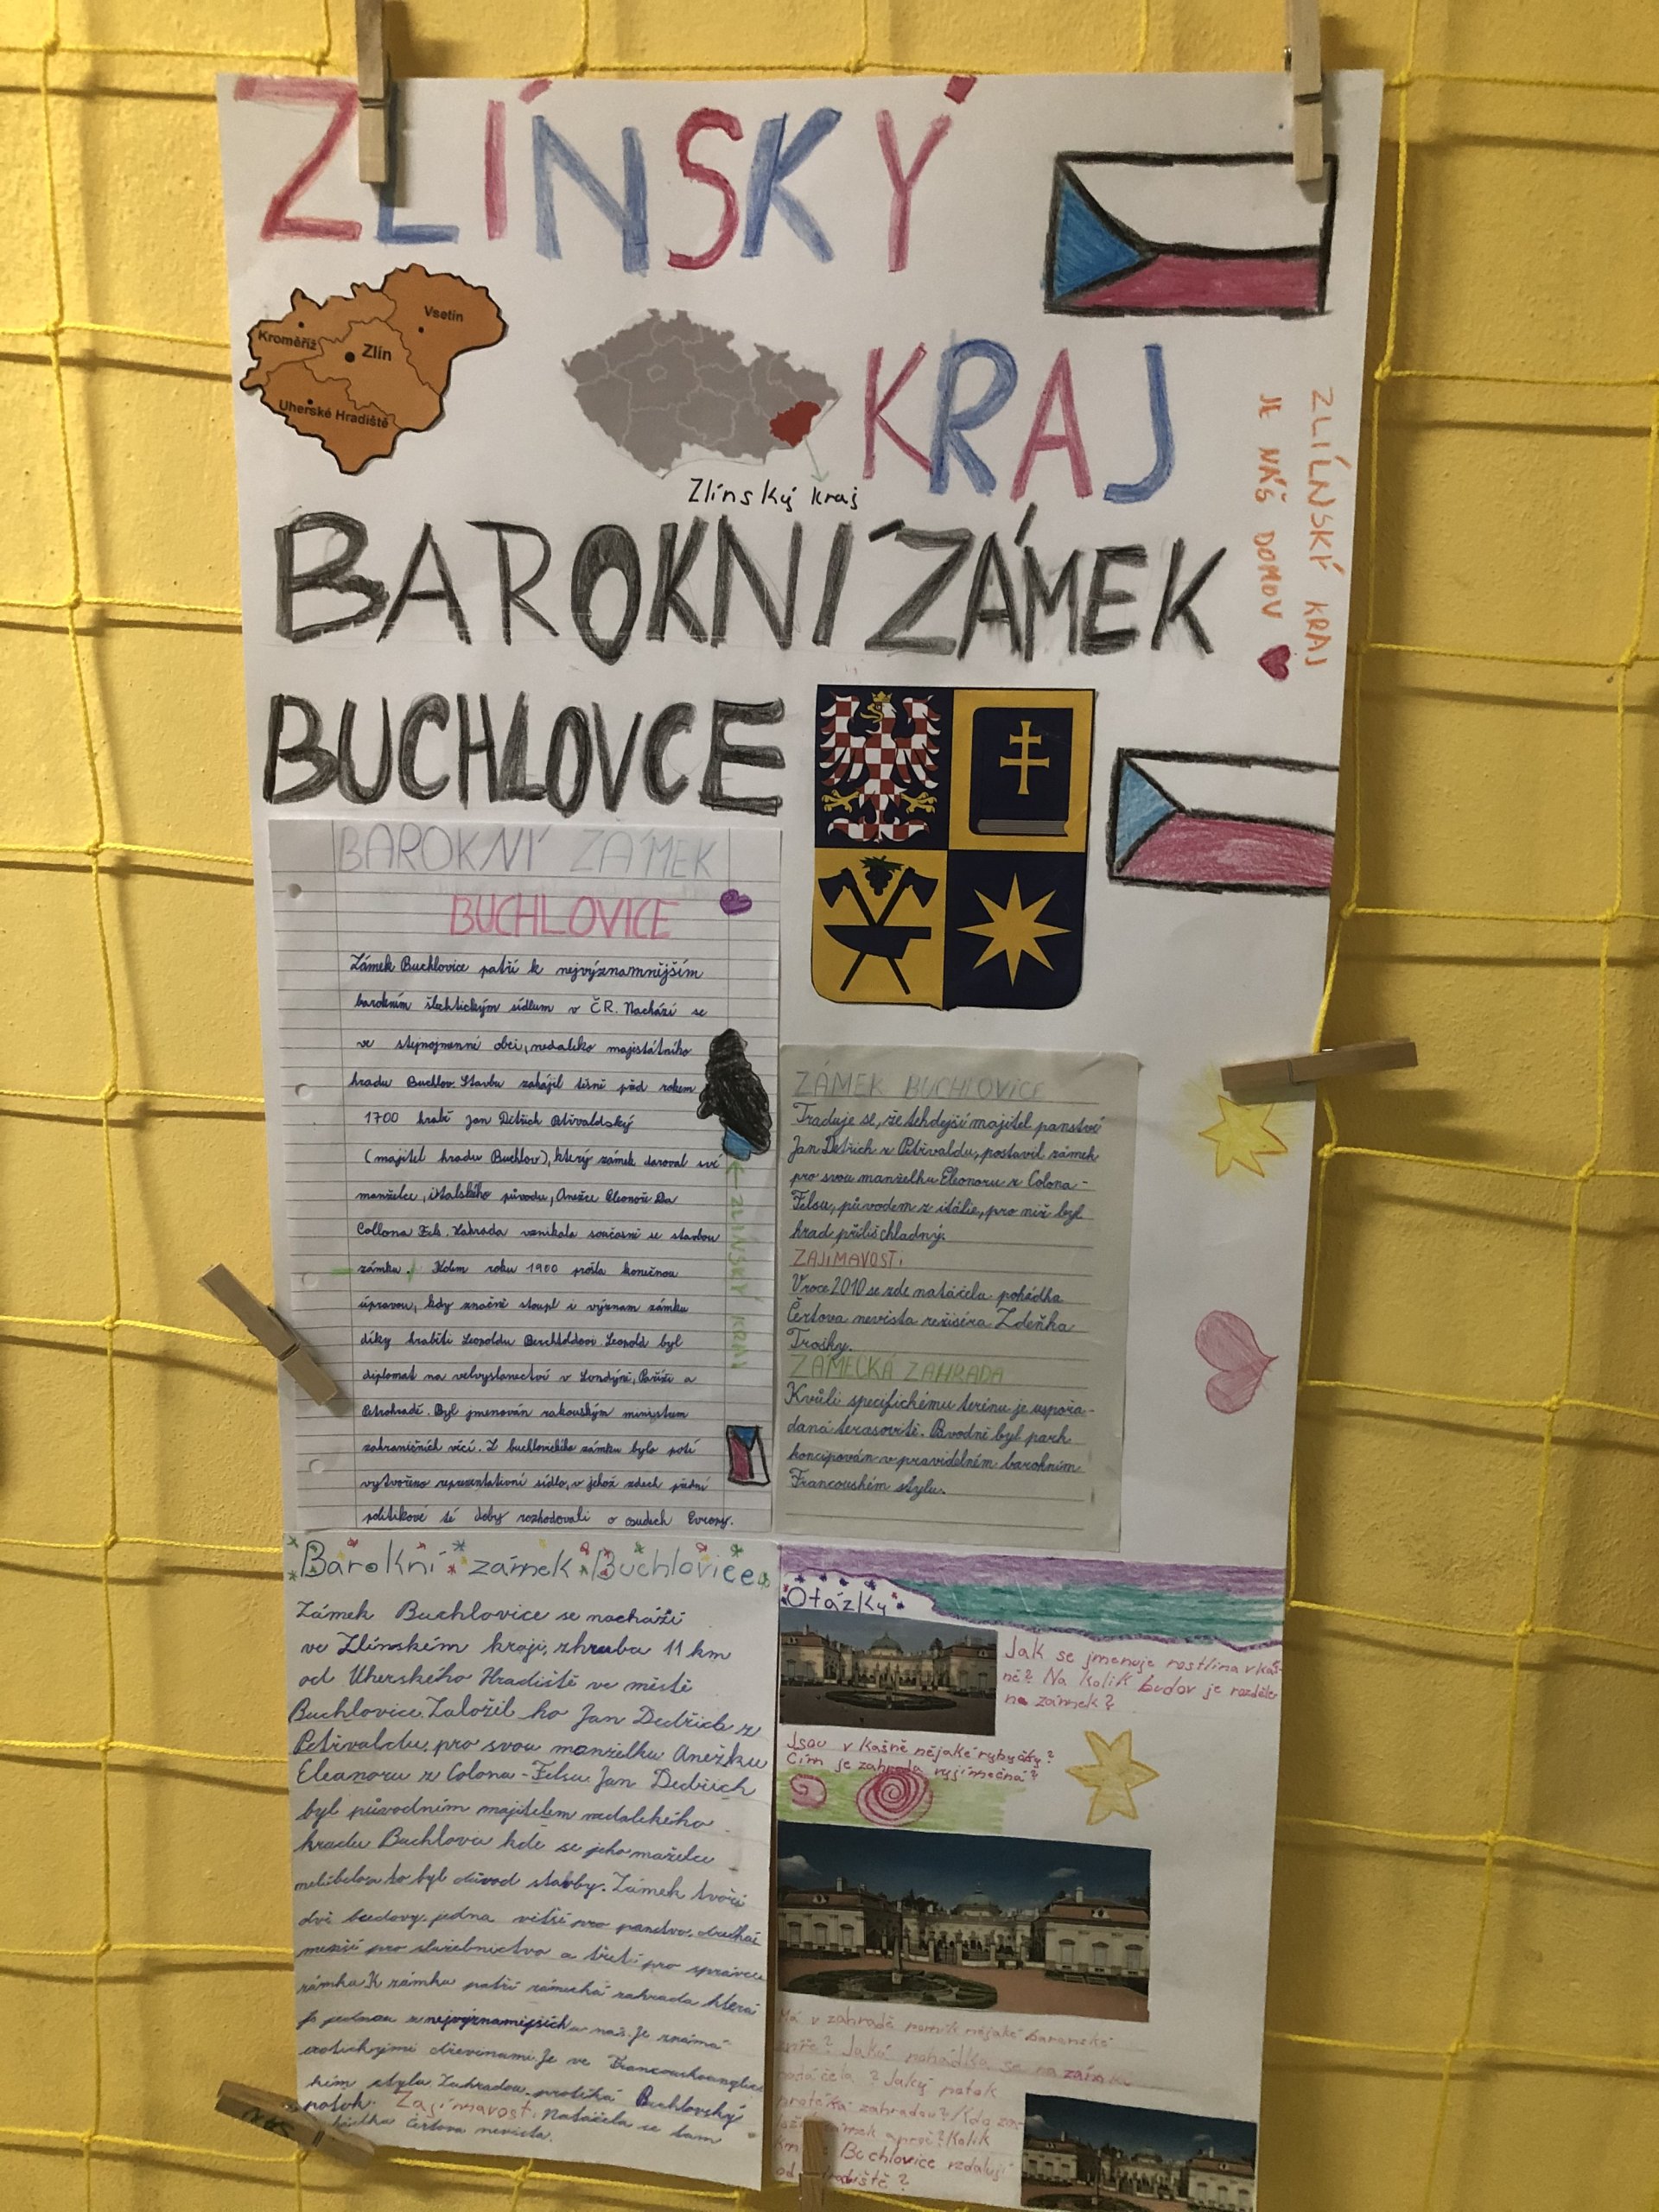 ZLÍNSKÝ
KRAJ
Kroměříž
Vsetín
Zlín
Uherské Hradiště
Zlínský kraj
ZLÍLNSKÝ KRAJ
JE NÁŠ DOMOV
BAROKNÍ ZÁMEK
BUCHLOVCE
BAROKNÍ ZÁMEK
BUCHLOVICE
Zámek Buchlovice patří k nejvýznamnějším
barokním šlechtickým sídlum v ČR. Nachází se
ve stejnojmenné obci, nedaleko majistátního
hradu Buchlov. Stavbu zahájil těsně před rokem
1700 hrabě Jan Dětřich Petřvaldský
(majitel hradu Buchlov), který zámek daroval své
manželce, italského původu, Anežce Eleonoře Da
Collona Fels. Zahrada vznikala současně se stavbou
zámku. Kolem roku 1900 prošla konečnou
úpravou, kdy značně stoupl i význam zámku
díky hraběti Leopoldu Berchtoldovi Leopold byl
diplomat na velvyslanectví v Londýně, Paříži a
Petrohradě. Byl jmenován rakouským ministrem
zahraničních věcí. Z buchlovického zámku bylo poté
vytvořeno reprezentativní sídlo, v jehož zdech přední
politikové té doby rozhodovali o osudech Evropy.
← ZLÍNSKÝ KRAJ
ZÁMEK BUCHLOVICE
Traduje se, že tehdejší majitel panství
Jan Dětřich z Petřvaldu, postavil zámek
pro svou manželku Eleonoru z Colona-
Felsu, původem z itálie, pro niž byl
hrad příliš chladný.
ZAJÍMAVOSTI
V roce 2010 se zde natáčela pohádka
Čertova nevěsta režiséra Zdeňka
Trošky.
ZÁMECKÁ ZAHRADA
Kvůli specifickému terénu je uspořa-
daná terasovitě. Původně byl park
koncipován v pravidelném barokním
Francouském stylu.
Barokní zámek Buchlovice
Zámek Buchlovice se nachází
ve Zlínském kraji, zhruba 11 km
od Uherského Hradiště ve městě
Buchlovice. Založil ho Jan Dedřich z
Petřvaldu pro svou manželku Anežku
Eleanoru z Colona-Felsu. Jan Dedřich
byl původním majitelem nedalekého
hradu Buchlova kde se jeho maželce
nelíbelo a to byl důvod stavby. Zámek tvoří
dvě budovy jedna větší pro panstvo, druhá
menší pro služebnictvo a třetí pro správce
zámku. K zámku patří zámecká zahrada která
je jednou z nejvýznamějších u nás. Je známá
exotickými dřevinami. Je ve Francouskoanglic
kém stylu. Zahradou protéká Buchlovský
potok. Zajímavosti Natáčela se tam
Čertova nevěsta.
Otázky
Jak se jmenuje rostlina v káš-
ně? Na kolik budov je rozděle
na zámek?
Jsou v kašně nějaké rybyčky?
Čím je zahrada vyjímečná?
Má v zahradě nějaké
Jaká pohádka se na zámku
natáčela? Jaký potok
protéká zahradou? Kdo za-
ložil zámek a proč? Kolik
km Buchlovice vzdalují
od Hradiště?